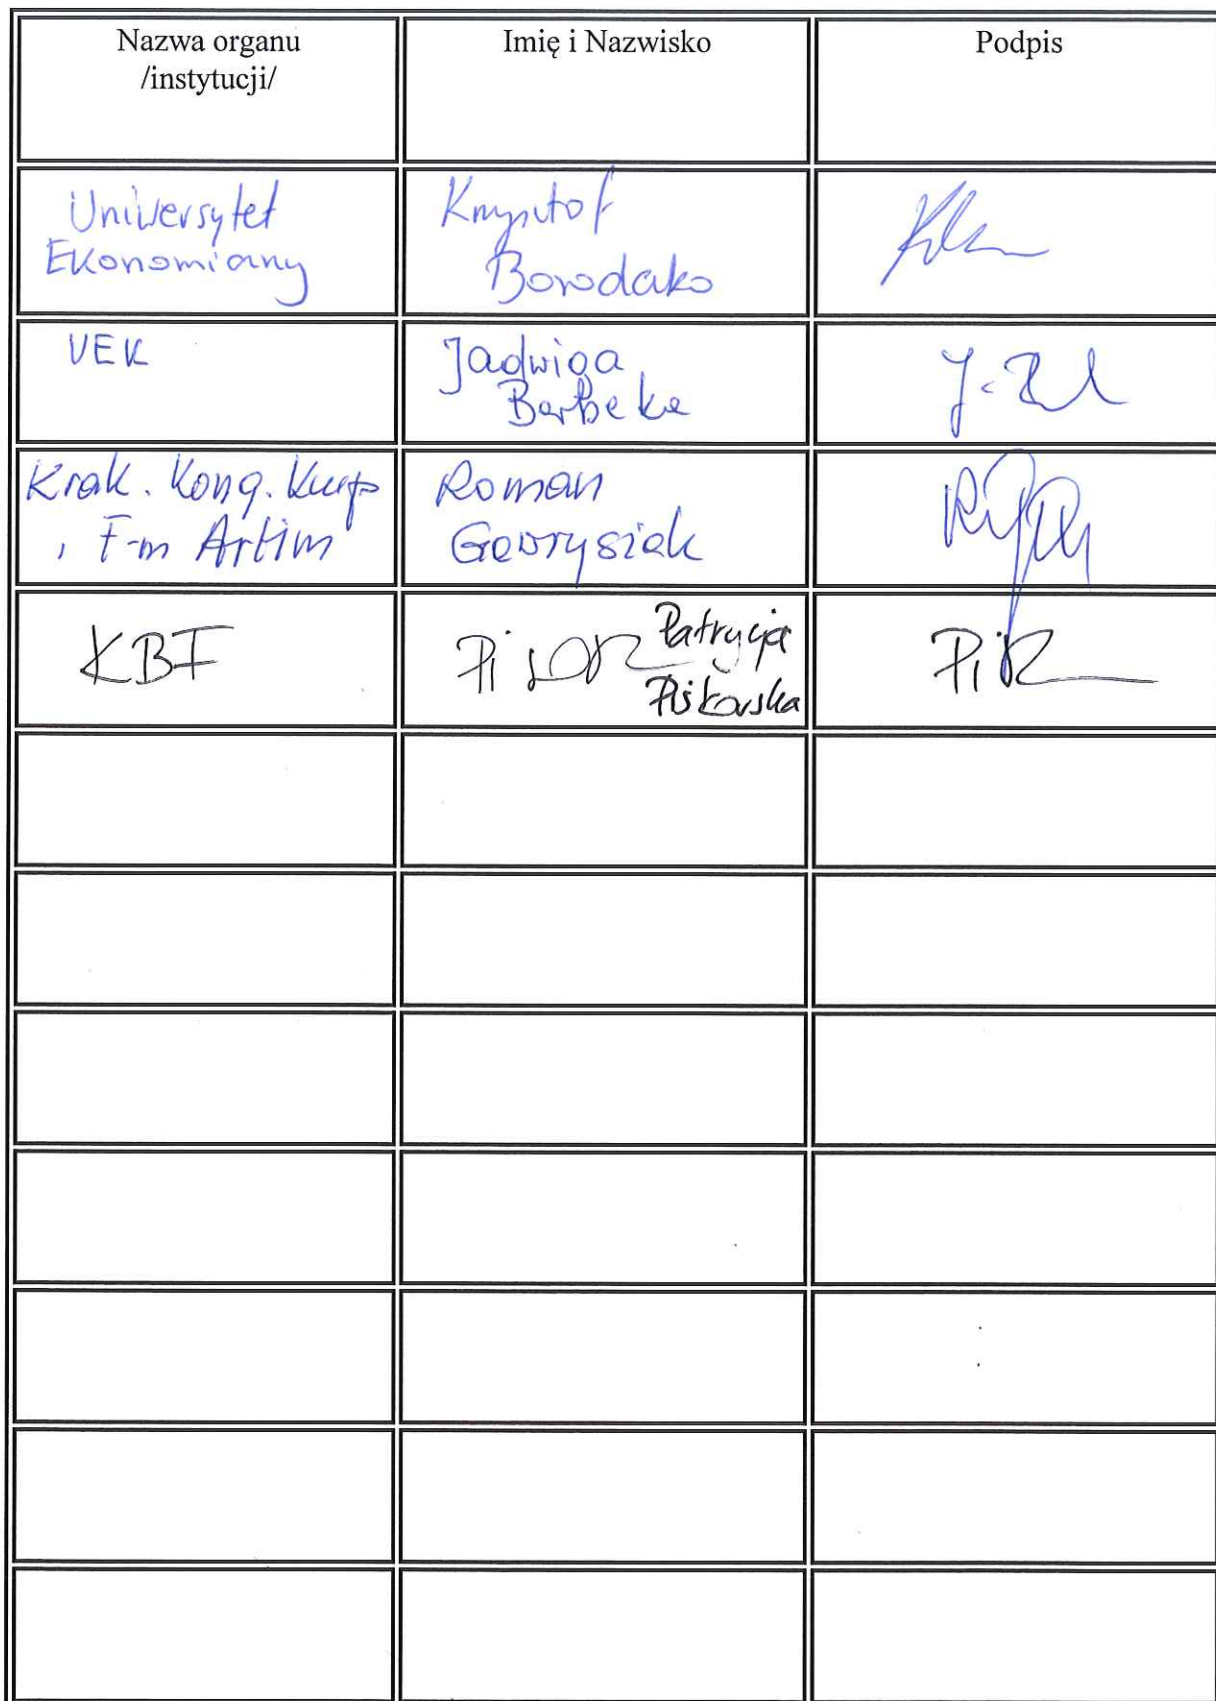 Nazwa organu
/instytucji/
Imię i Nazwisko
Podpis
Uniwersytet
Ekonomiczny
Krzysztof
Borodako
UEK
Jadwiga
Berbeka
Krak. Kong.
, F-m Artim
Roman
Gawrysiak
KBF
Patrycja
Piskorska